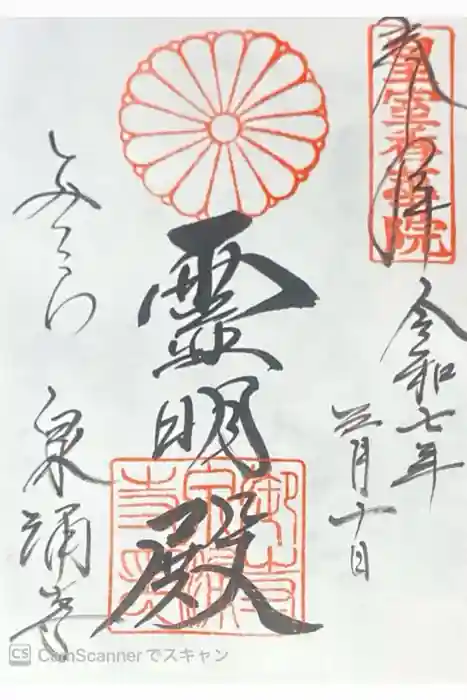 奉拝
皇室香華院
令和七年
五月十日
霊明殿
みてら
泉涌寺
CS CamScannerでスキャン